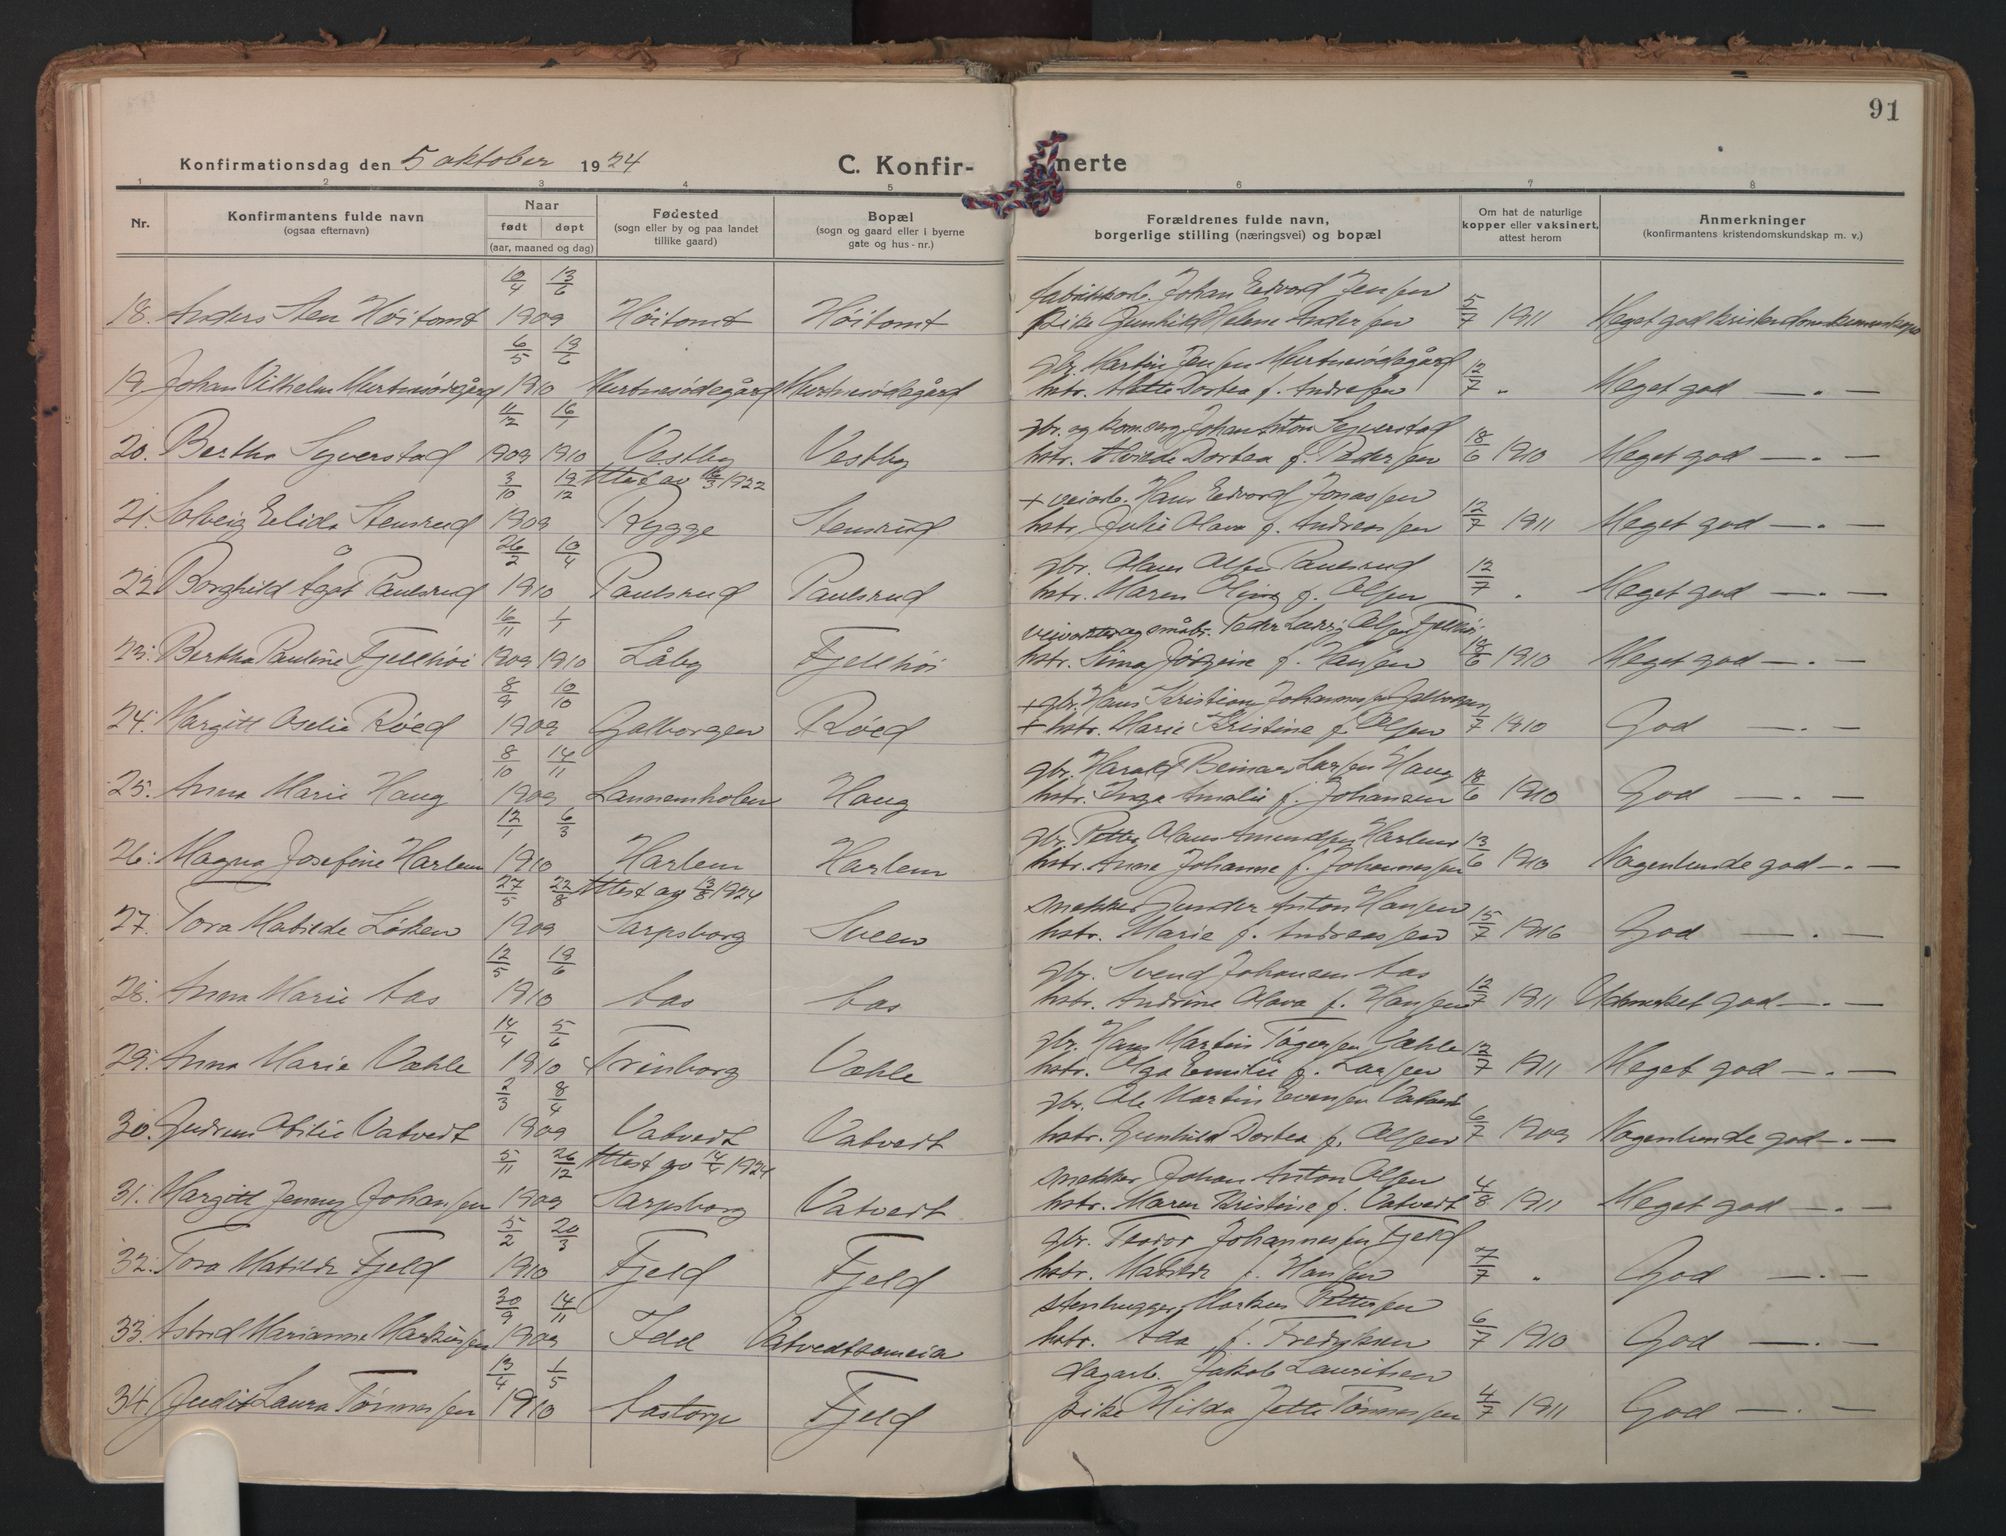 91
Konfirmationsdag den 5 oktober 1924
C. Konfir-
merte
1 2 3 4 5 6 7 8
Nr.
Konfirmantens fulde navn
(ogsaa efternavn)
Naar
født døpt
(aar, maaned og dag)
Fødested
(sogn eller by og paa landet
tillike gaard)
Bopæl
(sogn og gaard eller i byerne
gate og hus-nr.)
Forældrenes fulde navn,
borgerlige stilling (næringsvei) og bopæl
Om hat de naturlige
kopper eller vaksinert,
attest herom
Anmerkninger
(konfirmantens kristendomskundskap m. v.)
fabrikkarb. Johan Edvard Jensen
18. Anders Sten Höitomt 1909 Höitomt Höitomt pike Gunhild Helene Andersen 5/7 1911 Meget god kristendomskunnskap
6/5 19/6 gbr. Martin Jensen Murtnesødegård
19 Johan Vilhelm Murtnesødegård 1910 Murtnesødegård Murtnesødegård hstr. Mette Dortea f. Andresen 12/7 " Meget god —"—
11/12 16/1 gbr. og Johan Anton Syverstad
20. Bertha Syverstad 1909 1910 Vestby Vestby hstr. Alvilde Dortea f. Pedersen 18/6 1910 Meget god —"—
3/10 19/12 Attest av 1922 + veiarb. Hans Edvard Jonassen
21. Solveig Elida Stensrud 1909 Rygge Stensrud hstr. Julie Olava f. Andreassen 12/7 1911 Meget god —"—
26/2 10/4 gbr. Olaus Olsen Paulsrud
22 Borghild Ågot Paulsrud 1910 Paulsrud Paulsrud hstr. Maren Olina f. Olsen 12/7 " Meget god —"—
16/11 1/1 Peder Ludvig Olsen Fjellhöi
23. Bertha Pauline Fjellhöi 1909 1910 Låby Fjellhöi hstr. Sina Jörgine f. Hansen 18/6 1910 Meget god —"—
8/9 10/10 + gbr. Hans Kristian Johannessen Galborgen
24. Margitt Oselie Röed 1909 Galborgen Röed + hstr. Marie Kristine f. Olsen 1/7 1910 God —"—
8/10 14/11 gbr. Harald Beinar Larsen Haug
25. Anna Marie Haug 1909 Lannemholen Haug hstr. Inga Amalie f. Johansen 18/6 1910 God —"—
12/1 6/3 gbr. Petter Olaus Amundsen Harlem
26. Magna Josefine Harlem 1910 Harlem Harlem hstr. Anna Johanne f. Johannessen 13/6 1910 Nogenlunde god —"—
27/5 22/8 Attest av 13/8 1924 snekker Gunder Anton Hansen
27. Tora Matilde Løken 1909 Sarpsborg Sveen hstr. Marie f. Andreassen 15/7 1916 God —"—
12/5 19/6 gbr. Svend Johansen Aas
28. Anna Marie Aas 1910 Aas Aas hstr. Andrine Olava f. Hansen 12/7 1911 Udmerket god —"—
14/4 5/6 gbr. Hans Martin Tögersen Væhle
29. Anna Marie Væhle 1910 Trinborg Væhle hstr. Olga Emilie f. Larsen 12/7 1911 Meget god —"—
2/3 8/4 gbr. Ole Martin Evensen Vatvedt
30. Gudrun Otilie Vatvedt 1909 Vatvedt Vatvedt hstr. Gunhild Dortea f. Olsen 6/7 1909 Nogenlunde god —"—
5/11 26/12 Attest av 14/4 1924 snekker Johan Anton Olsen
31. Margitt Jenny Johansen 1909 Sarpsborg Vatvedt hstr. Maren Kristine f. Vatvedt 4/8 1911 Meget god —"—
5/2 20/3 gbr. Teodor Johannessen Fjeld
32. Tora Matilde Fjeld 1910 Fjeld Fjeld hstr. Matilde f. Hansen 7/7 " God —"—
30/9 14/11 stenhugger Markus Pettersen
33. Astrid Marianne Markussen 1909 Idd Vatvedtsameia hstr. Ada f. Fredriksen 6/7 1910 God —"—
13/4 1/5 dagarb. Jakob Lauritsen
34. Judit Laura Tönnessen 1910 Aastorp Fjeld pike Hilda Jette Tönnessen 4/7 1911 God —"—